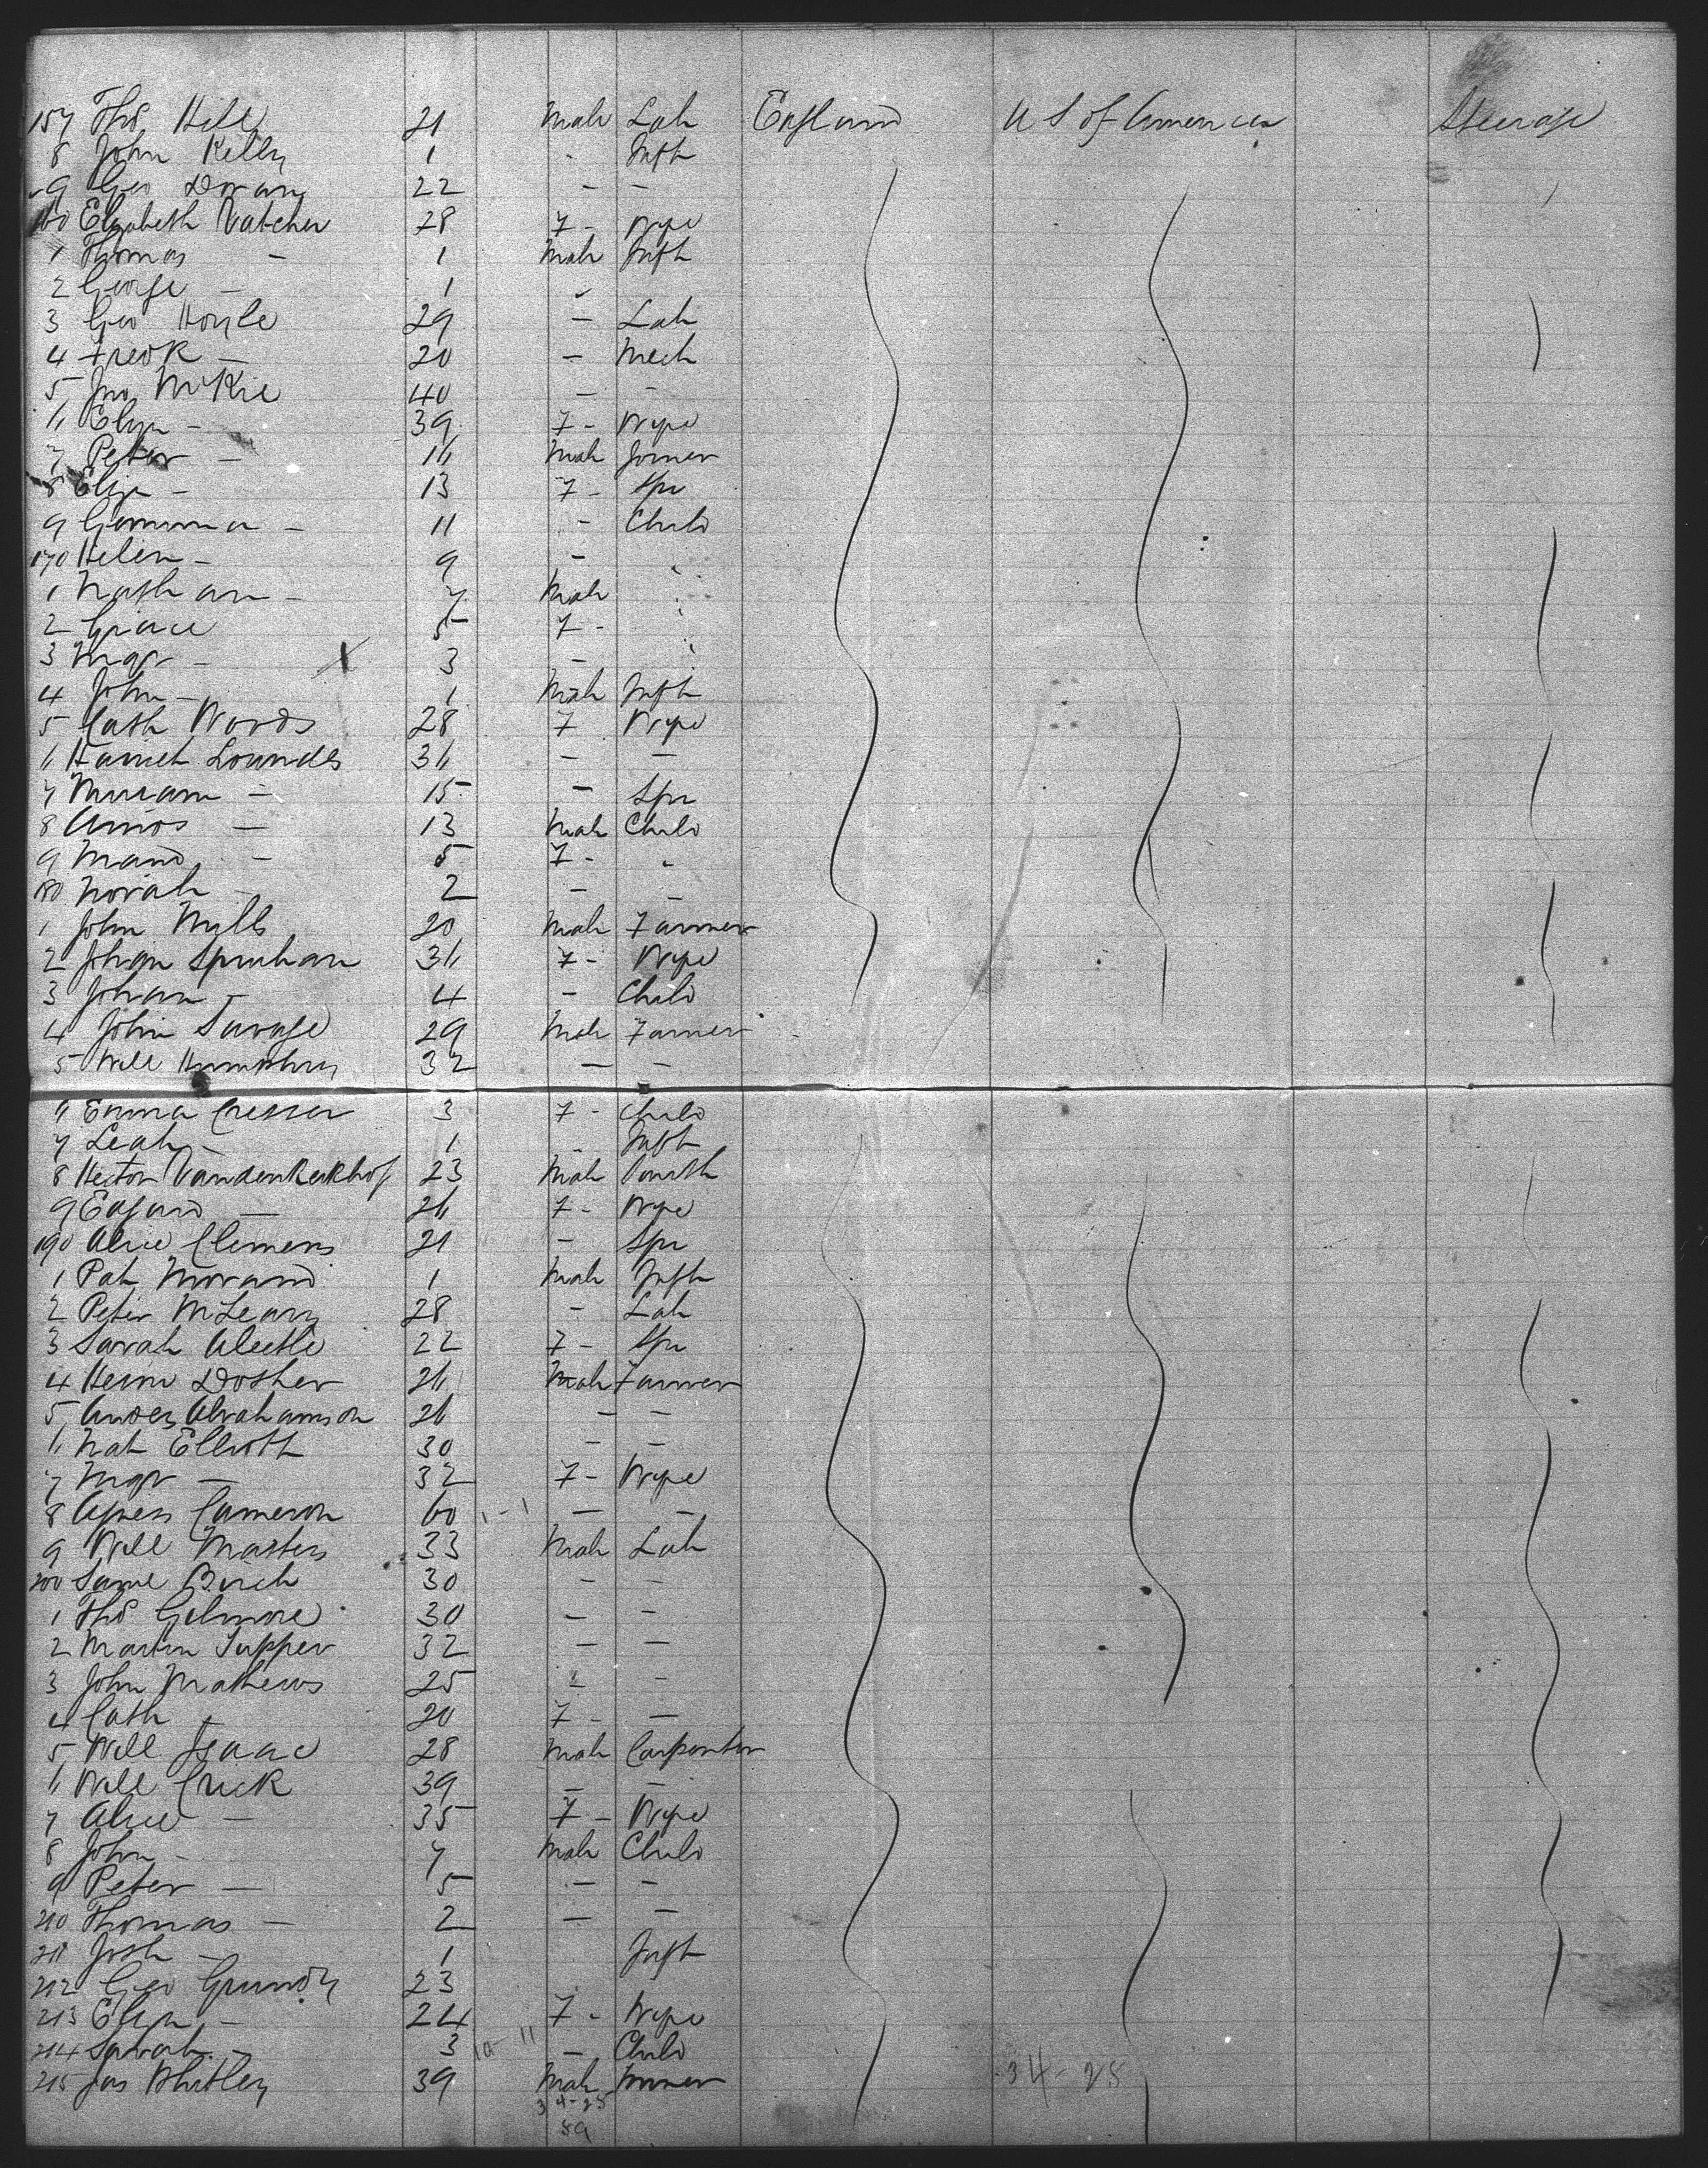 157 Thos Hill 21 Male Lab England U S of America Steerage
8 John Kelly 1 - Inft
9 Geo Doran 22 - -
160 Elizabeth Vatcher 28 F - Wife
1 Thomas - 1 Male Inft
2 George - 1 -
3 Geo Hoyle 29 - Lab
4 Fredk - 20 - Mech
5 Jno McKie 40 - -
6 Eliza - 39 F - Wife
7 Peter - 16 Male Joiner
8 Eliza - 13 F - Spr
9 Gemima - 11 - Child
170 Helen - 9 -
1 Nathan - 7 Male
2 Grace 5 F -
3 Mgr - 3 -
4 John - 1 Male Inft
5 Cath Woods 28 F Wife
6 Harriet Lowndes 36 - -
7 Miriam - 15 - Spr
8 Amos - 13 Male Child
9 Maud - 5 F -
180 Norah - 2 - -
1 John Mills 20 Male Farmer
2 Johan Spruhan 36 F - Wife
3 Johan - 4 - Child
4 John Savage 29 Male Farmer
5 Will Humphry 32 - -
6 Emma Cresser 3 F - Child
7 Leah - 1 - Inft
8 Hector Vandenkerkhof 23 Male
9 Edgard - 26 F - Wife
190 Alice Clemens 21 - Spr
1 Pat Morand 1 Male Inft
2 Peter McLeary 28 - Lab
3 Sarah 22 F - Spr
4 Dosher 26 Male Farmer
5 Anders Abrahamson 26 - -
6 Nat Elliott 30 - -
7 Mgr - 32 F - Wife
8 Agness Cameron 60 - -
9 Will Masters 33 Male Lab
200 Saml Birch 30 - -
1 Thos Gilmore 30 - -
2 Martin Tupper 32 - -
3 John Mathews 25 - -
4 Cath - 20 F - -
5 Will Isaac 28 Male Carpenter
6 Will Crick 39 - -
7 Alice - 35 F - Wife
8 John - 7 Male Child
9 Peter - 5 - -
210 Thomas - 2 - -
211 Josh - 1 Inft
212 Geo Grundy 23
213 Eliza - 24 F - Wife
214 Sarah - 3 - Child
215 Jas Whitley 39 Male 34-25
34-25
59